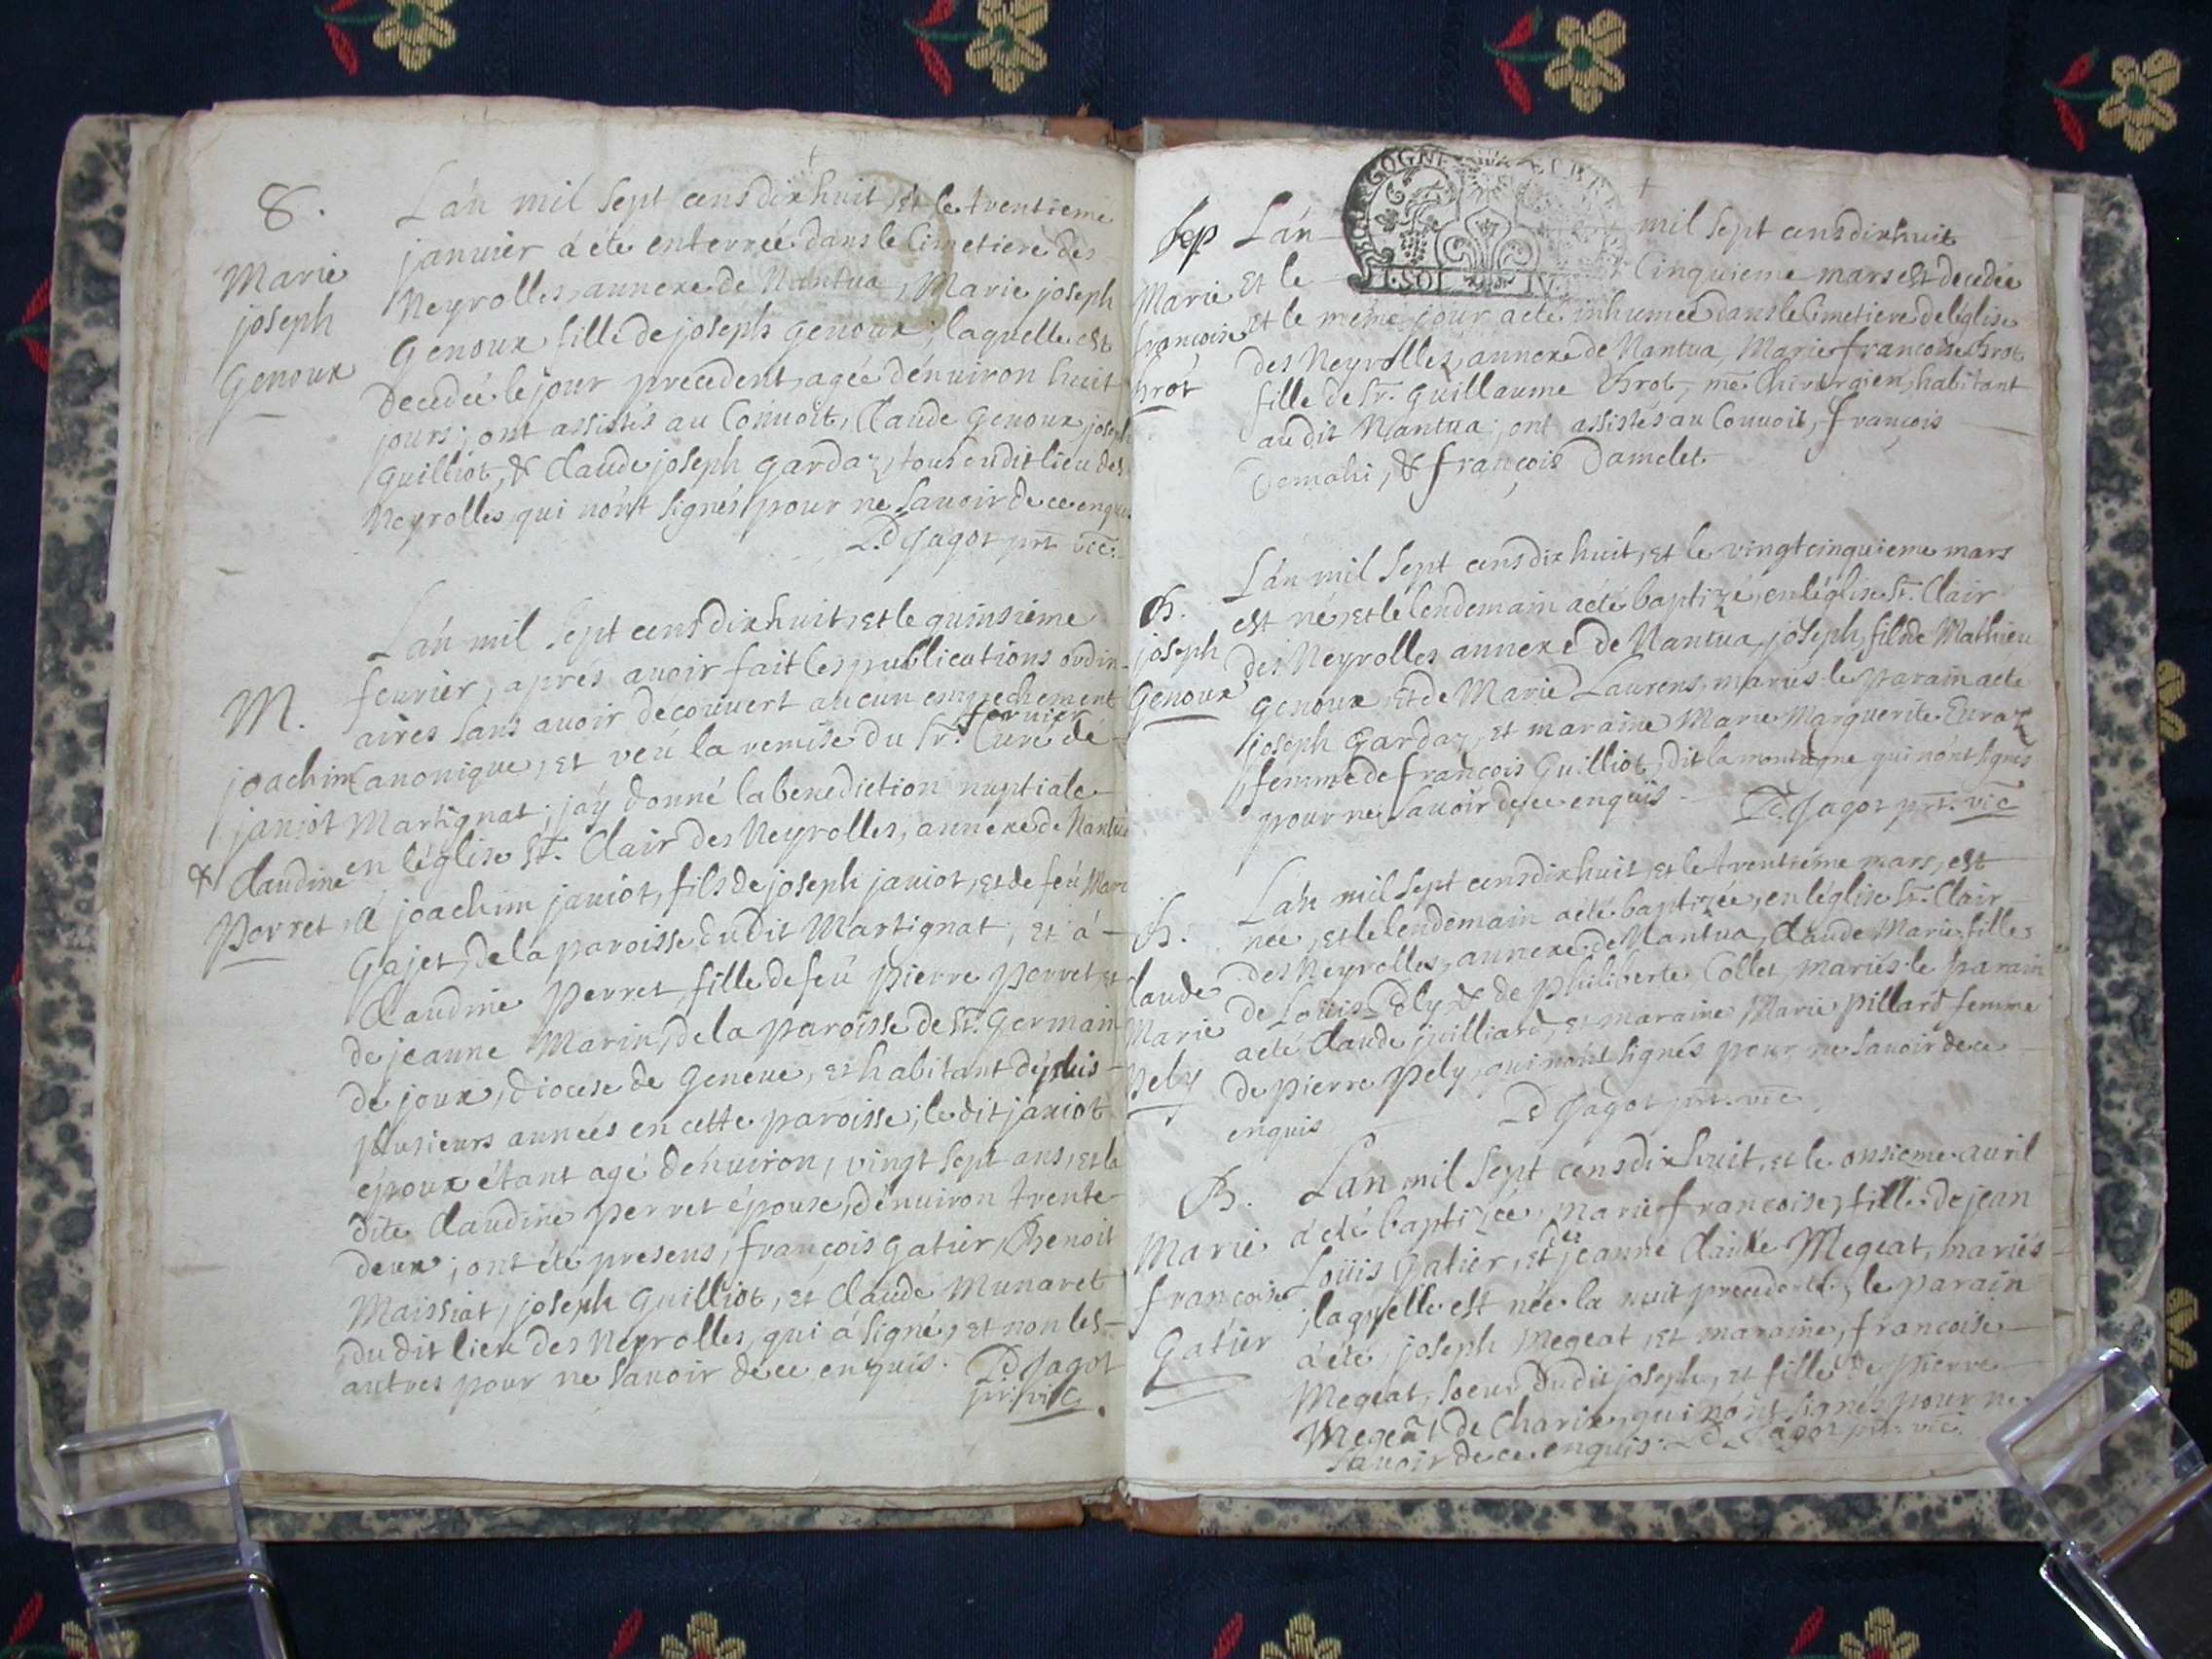 8.
Marie
joseph
Genoux
L'an mil sept cens dix huit, et le trentieme
janvier a été enterrée dans le Cimetiere des
Neyrolles, annexe de Nantua, Marie joseph
Genoux fille de joseph genoux; laquelle est
decedeé le jour precedent, ageé d'énuiron huit
jours; ont assistés au Conuoit, Claude genoux, joseph
guilliot, & claude joseph gardaz, tous du dit lieu des
Neyrolles, qui n'ont signés pour ne sauoir de ce enquis
D Jagot prt. vic.
M.
joachim
janiot
& Claudine
Perret
L'an mil sept cens dix huit, et le quinsieme
feurier, aprés auoir fait les publications ordin-
aires sans auoir decouuert aucun empechement
Canonique, et veú la remise du Sr. fornier Curé de
Martignat; j'aÿ donné la benediction nuptiale
en l'église St. Clair des Neyrolles, annexe de Nantua
á joachim janiot, fils de joseph janiot, et de feú Marie
Gajet, de la paroisse dudit Martignat, et á
Claudine Perret, fille de feu Pierre Perret, et
de jeanne Marin, de la paroisse de St. Germain
de joux, Diocese de Geneue, et habitant dépuis
plusieurs anneés en cette paroisse; le dit janiot
époux étant agé d'énuiron, vingt sept ans, et la
dite Claudine Perret épouse, d'énuiron trente
deux; ont été presens, françois gatier, Benoit
Maissiat, joseph Guilliot, et Claude Munaret
du dit lieu des Neyrolles, qui á signé, et non les
autres pour ne sauoir de ce enquis. D Jagot
prt. vic.
BOURGOGNE
I. SOL IV
Sep
Marie
françoise
Brot
L'an mil sept cens dix huit
et le Cinquieme mars est decedeé
et le même jour a été inhumeé dans le Cimetiere de l'église
des Neyrolles, annexe de Nantua, Marie françoise Brot
fille de Sr. Guillaume Brot, me. Chirurgien, habitant
au dit Nantua; ont assistés au Conuoit, françois
Demahi, & françois Damelet
B.
joseph
Genoux
L'an mil sept cens dix huit, et le vingt cinquieme mars
est né, et le lendemain a été baptizé, en l'église St. Clair
des Neyrolles annexe de Nantua, joseph, fils de Mathieu
genoux, et de Marie Laurens, mariés. le parain a été
joseph Gardaz, et maraine Marie Marguerite Euraz
femme de françois Guilliot, dit la montagne qui n'ont signés
pour ne sauoir de ce enquis D. Jagot prt. vic
B.
Claude
Marie
Pely
L'an mil sept cens dix huit, et le trentiéme mars, est
née, et le lendemain a été baptizée, en l'église St. Clair
des Neyrolles, annexe de Nantua, Claude Marie, fille
de Loüis Pely & de Philiberte Collet, mariés. le parain
a été Claude juilliard, et maraine Marie Pillard femme
de Pierre Pely, qui n'ont signés pour ne sauoir de ce
enquis D Jagot prt. vic
B.
Marie
françoise
Gatier
L'an mil sept cens dix huit, et le onsieme auril
á été baptizée, marie françoise, fille de jean
Loüis Gatier, et de jeanne Claude Megeat, mariés
laquelle est née la nuit precedente; le parain
á été, joseph Megeat, et maraine, françoise
Megeat, soeur du dit joseph, et fille de Pierre
Megeat de Charix, qui n'ont signés pour ne
sauoir de ce enquis. D Jagot prt. vic.